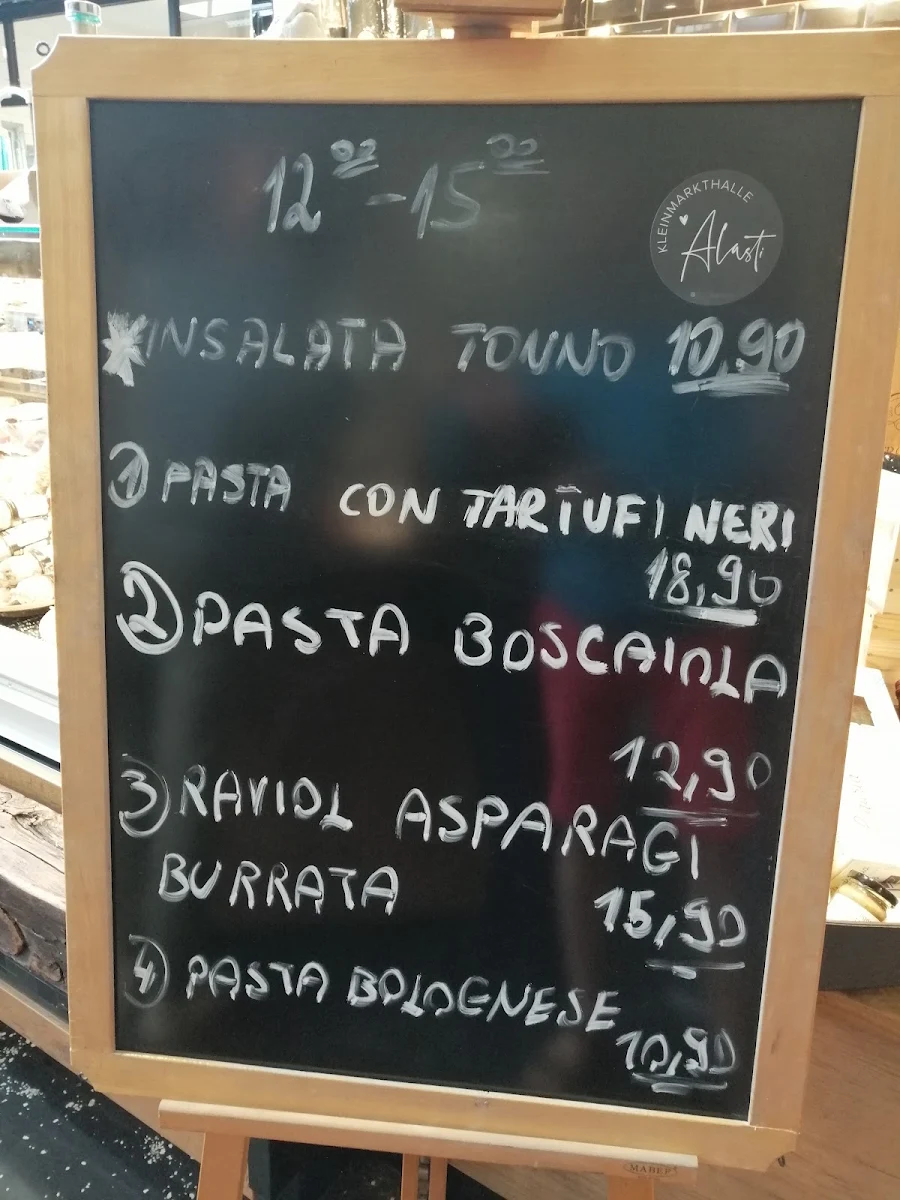 12⁰⁰ - 15⁰⁰
KLEINMARKTHALLE
Alasti
*INSALATA TONNO 10,90
1 PASTA CON TARTUFI NERI
18,90
2 PASTA BOSCAIOLA
12,90
3 RAVIOL ASPARAGI
BURRATA 15,90
4 PASTA BOLOGNESE
10,90
MABEF